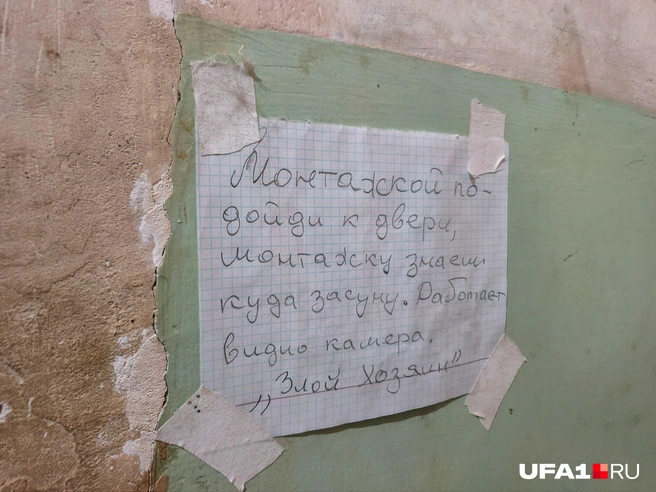 Монтажкой по-
дойди к двери,
монтажку знаеш
куда засуну. Работает
видио камера.
„Злой Хозяин”
UFA1.RU